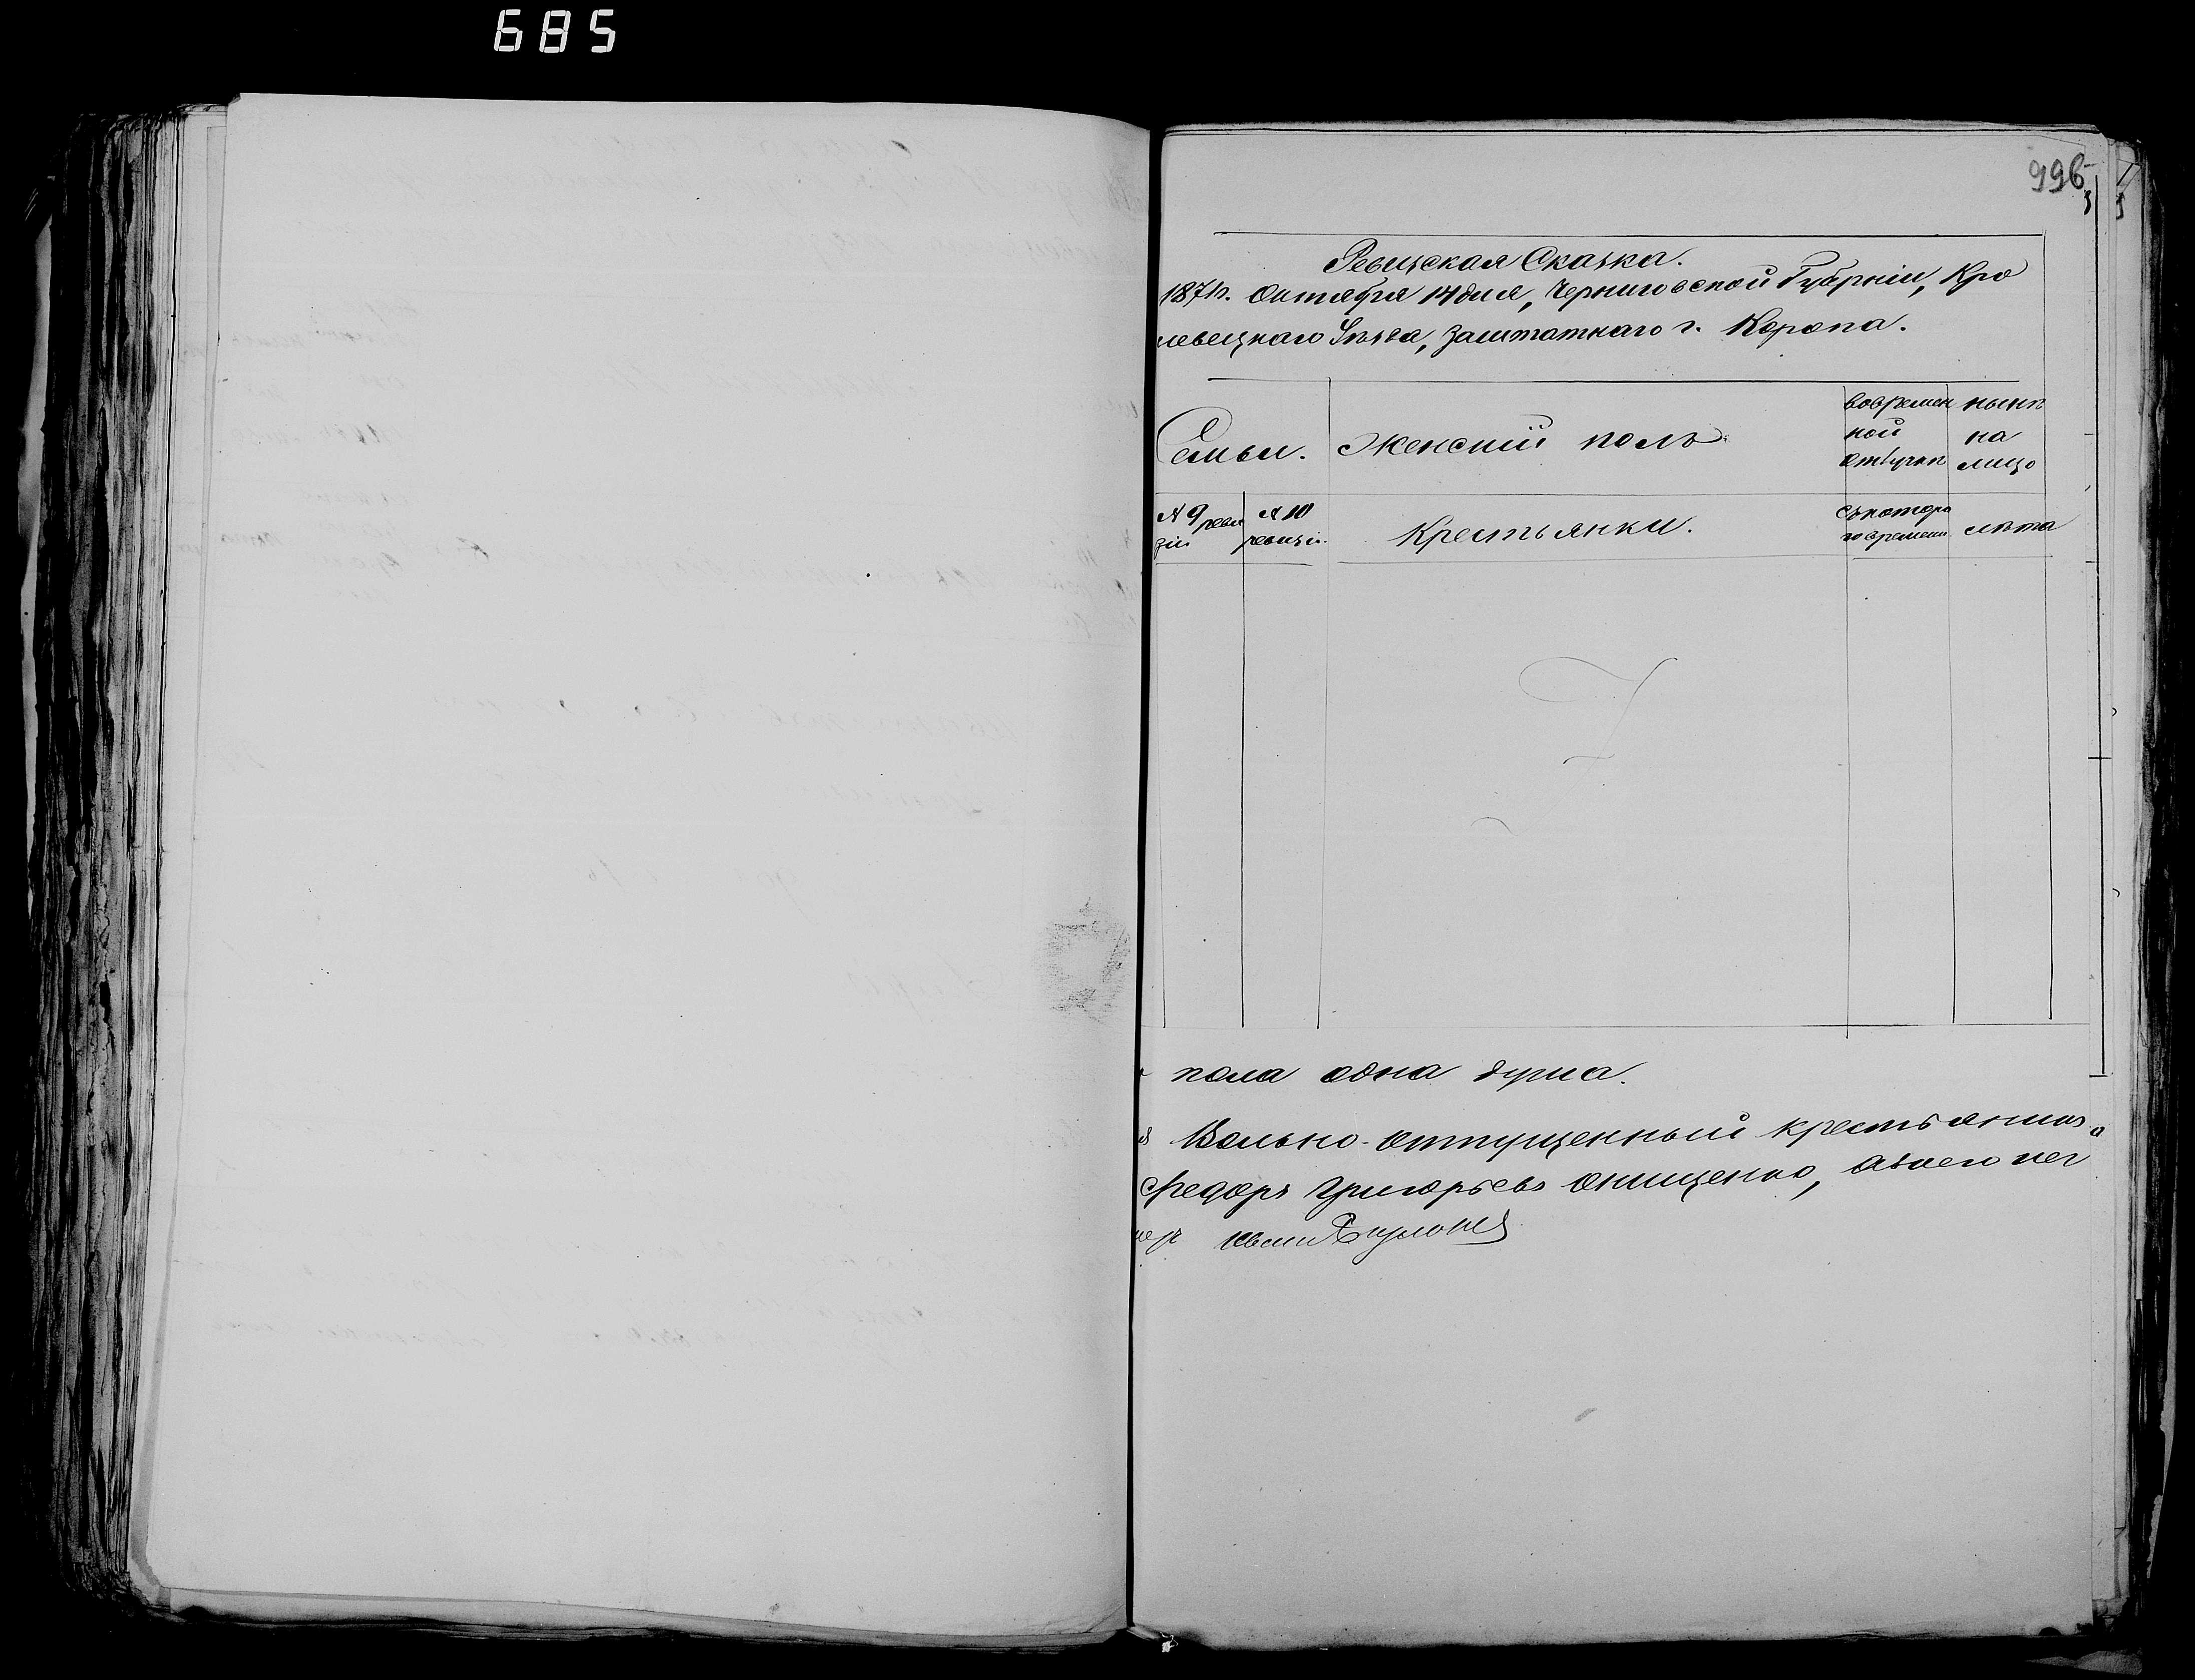 685
996
Ревизская Сказка.
1871г. Октября 14 дня, Черниговской Губерніи, Кро
левецкаго Уѣзда, заштатнаго г. Коропа.
Семьи. Женскій полъ
вовремен
ной
отлучкѣ
нынѣ
на
лицо
№ 9 реви
зіи
№ 10
ревизіи.
Крестьянки.
съкоторо
говремени
лѣта
пола одна душа.
Вольно-отпущенный крестьянинъ
Федоръ Григорьевъ Онищенко, а